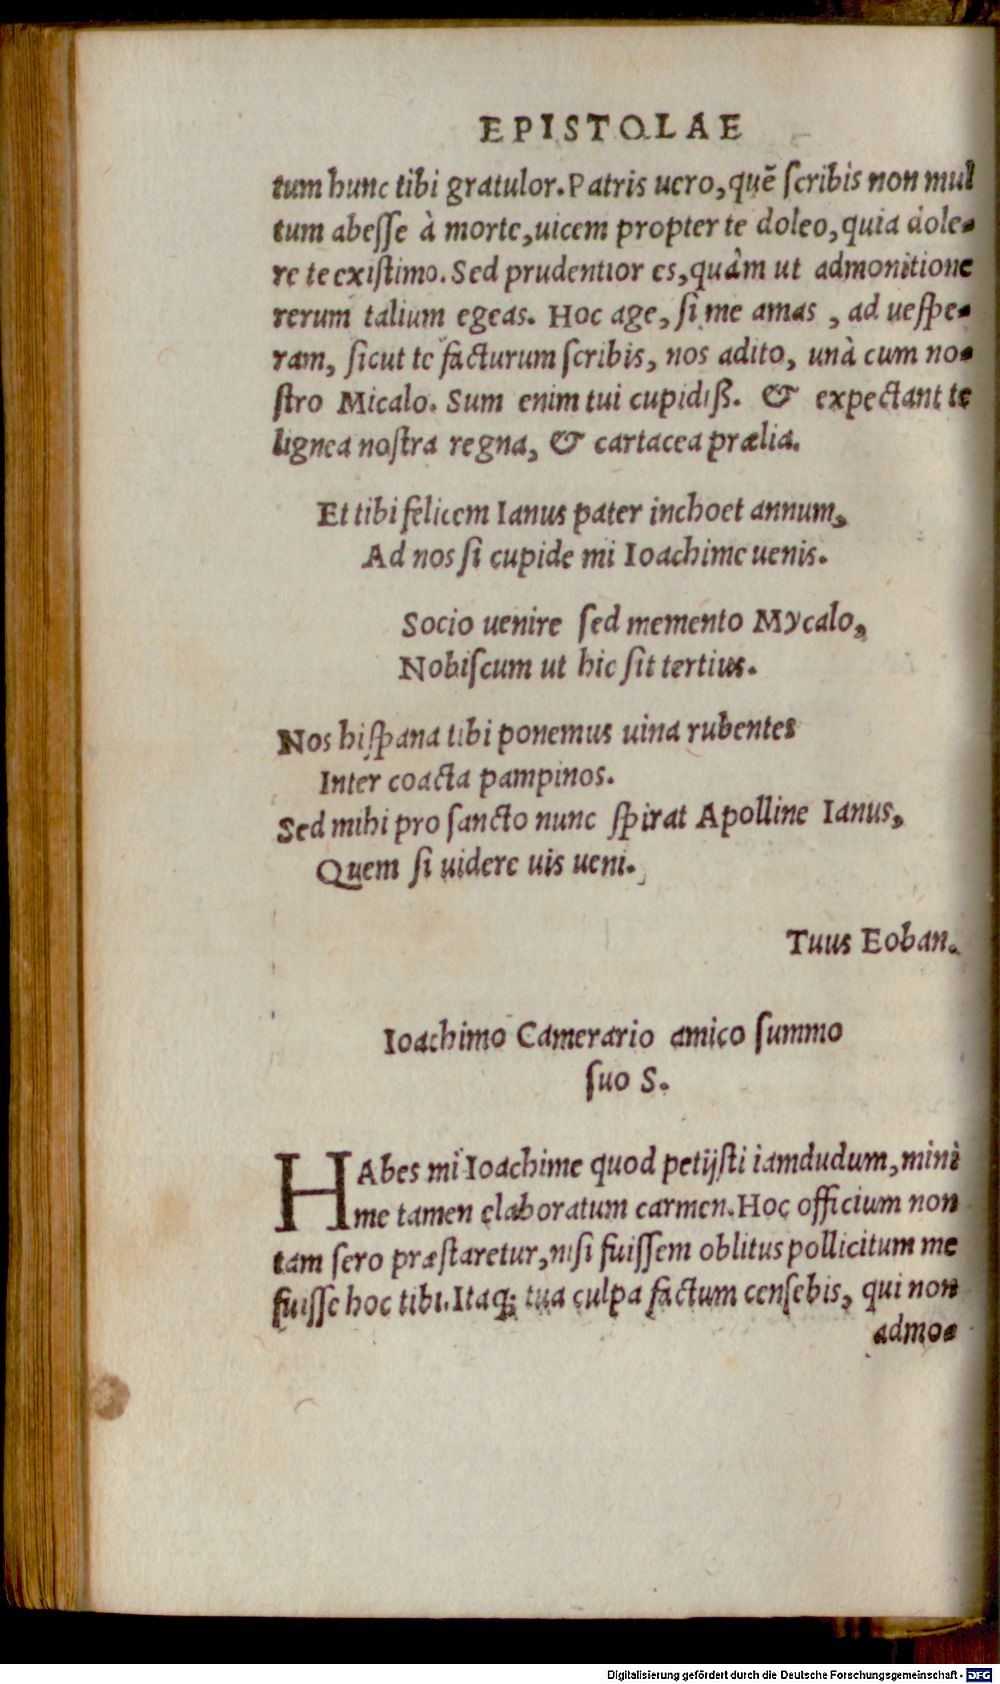 EPISTOLAE
tum hunc tibi gratulor. Patris uero, quẽ ſcribis non mul
tum abeſſe à morte, uicem propter te doleo, quia dole-
re te exiſtimo. Sed prudentior es, quàm ut admonitione
rerum talium egeas. Hoc age, ſi me amas , ad ueſpe-
ram, ſicut te facturum ſcribis, nos adito, unà cum no-
ſtro Micalo. Sum enim tui cupidiß. & expectant te
lignea noſtra regna, & cartacea prælia.
Et tibi felicem Ianus pater inchoet annum,
Ad nos ſi cupide mi Ioachime uenis.
Socio uenire ſed memento Mycalo,
Nobiſcum ut hic ſit tertius.
Nos hiſpana tibi ponemus uina rubentes
Inter coacta pampinos.
Sed mihi pro ſancto nunc ſpirat Apolline Ianus,
Quem ſi uidere uis ueni.
Tuus Eoban.
Ioachimo Camerario amico ſummo
ſuo S.
HAbes mi Ioachime quod petijſti iamdudum, mini
me tamen elaboratum carmen. Hoc officium non
tam ſero præſtaretur, niſi fuiſſem oblitus pollicitum me
fuiſſe hoc tibi. Itaq; tua culpa factum cenſebis, qui non
admo-
Digitalisierung gefördert durch die Deutsche Forschungsgemeinschaft - DFG